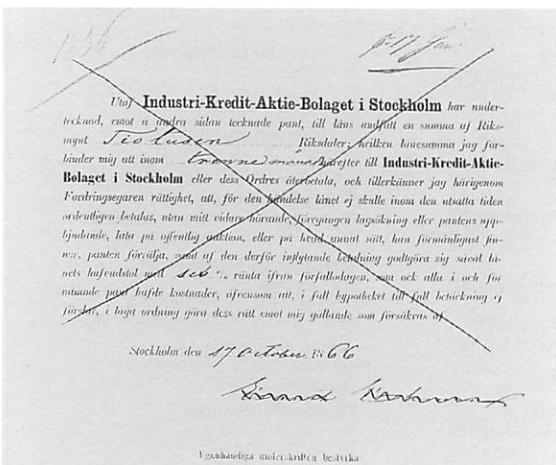 1336
17 Jan.
Utaf Industri-Kredit-Aktie-Bolaget i Stockholm har under-
tecknad, emot å andra sidan tecknade pant, till låns undfått en summa af Riks-
mynt Tiotusen Riksdaler; hvilken lånesumma jag för-
binder mig att inom trenne månader härefter till Industri-Kredit-Aktie-
Bolaget i Stockholm eller dess Ordres återbetala, och tillerkänner jag härigenom
Fordringsegaren rättighet, att, för den händelse lånet ej skulle inom den utsatta tiden
ordentligen betalas, utan mitt vidare hörande, föregången lagsökning eller pantens upp-
bjudande, låta på offentlig auktion, eller på hvad annat sätt, han förmånligast fin-
ner, panten försälja, samt af den derför inflytande betalning godtgöra sig såväl lå-
nets hufvudstol med sex % ränta ifrån förfallodagen, som ock alla i och för
nämnde pant hafde kostnader, äfvensom att, i fall hypotheket till full betäckning ej
förslår, i laga ordning göra dess rätt emot mig gällande som försäkras af
Stockholm den 17 October 1866
Egenhändiga underskriften bestyrka: